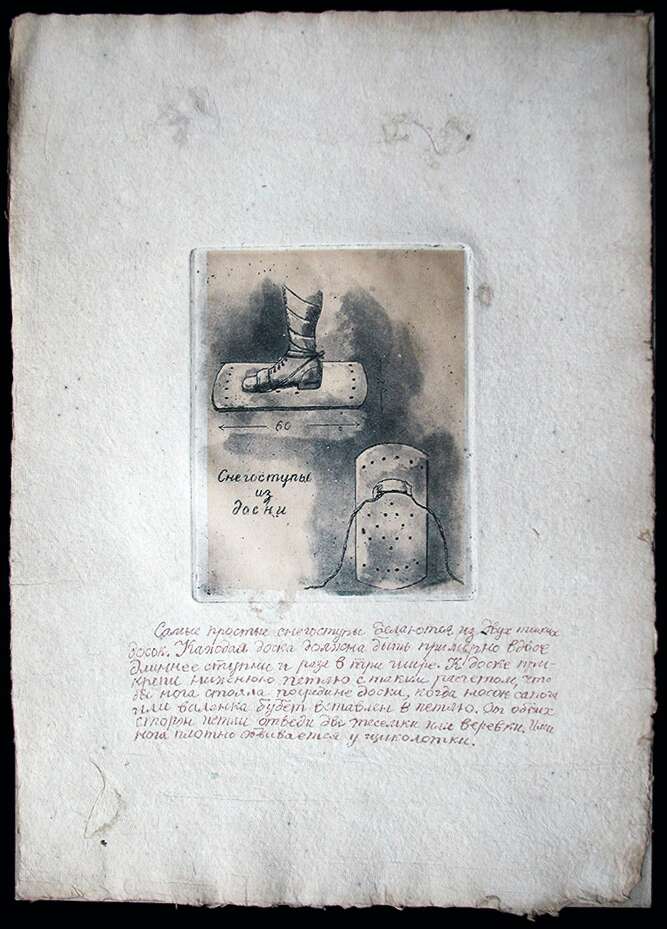 60
Снегоступы
из
доски
Самые простые снегоступы делаются из двух тонких
досок. Каждая доска должна быть примерно вдвое
длиннее ступни и раза в три шире. К доске при-
крепи ниженою петлю с таким расчетом, что
бы нога стояла посредине доски, когда носок сапога
или валенка будет вставлен в петлю. От обеих
сторон петли отведи две тесемки или веревки. Ими
нога плотно обвивается у щиколотки.